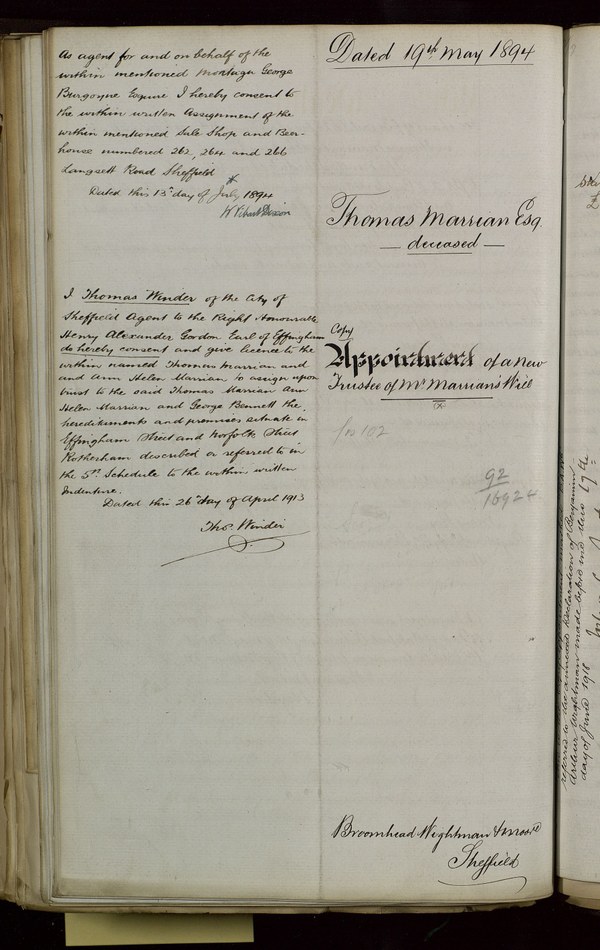 As agent for and on behalf of the
within mentioned Montagu George
Burgoyne Esquire I hereby consent to
the within written Assignment of the
within mentioned Sale Shop and Beer-
house numbered 262, 264 and 266
Langsett Road Sheffield
Dated this 13th day of July 1894
I Thomas Winder of the City of
Sheffield Agent to the Right Honourable
Henry Alexander Gordon Earl of Effingham
do hereby consent and give licence to the
within named Thomas Marrian and
and Ann Helen Marrian to assign upon
trust to the said Thomas Marrian Ann
Helen Marrian and George Bennett the
hereditaments and premises situate in
Effingham Street and Norfolk Street
Rotherham described or referred to in
the 5th Schedule to the within written
Indenture.
Dated this 26th day of April 1913
Thos. Winder
Dated 19th May 1894
Thomas Marrian Esq.
— deceased —
Copy
Appointment of a new
Trustee of Mr Marrian's Will
92
16924
Broomhead Wightman & Moore
Sheffield
referred to in the annexed declaration of Benjamin
Arthur Wightman made before me this 19th
day of June 1918